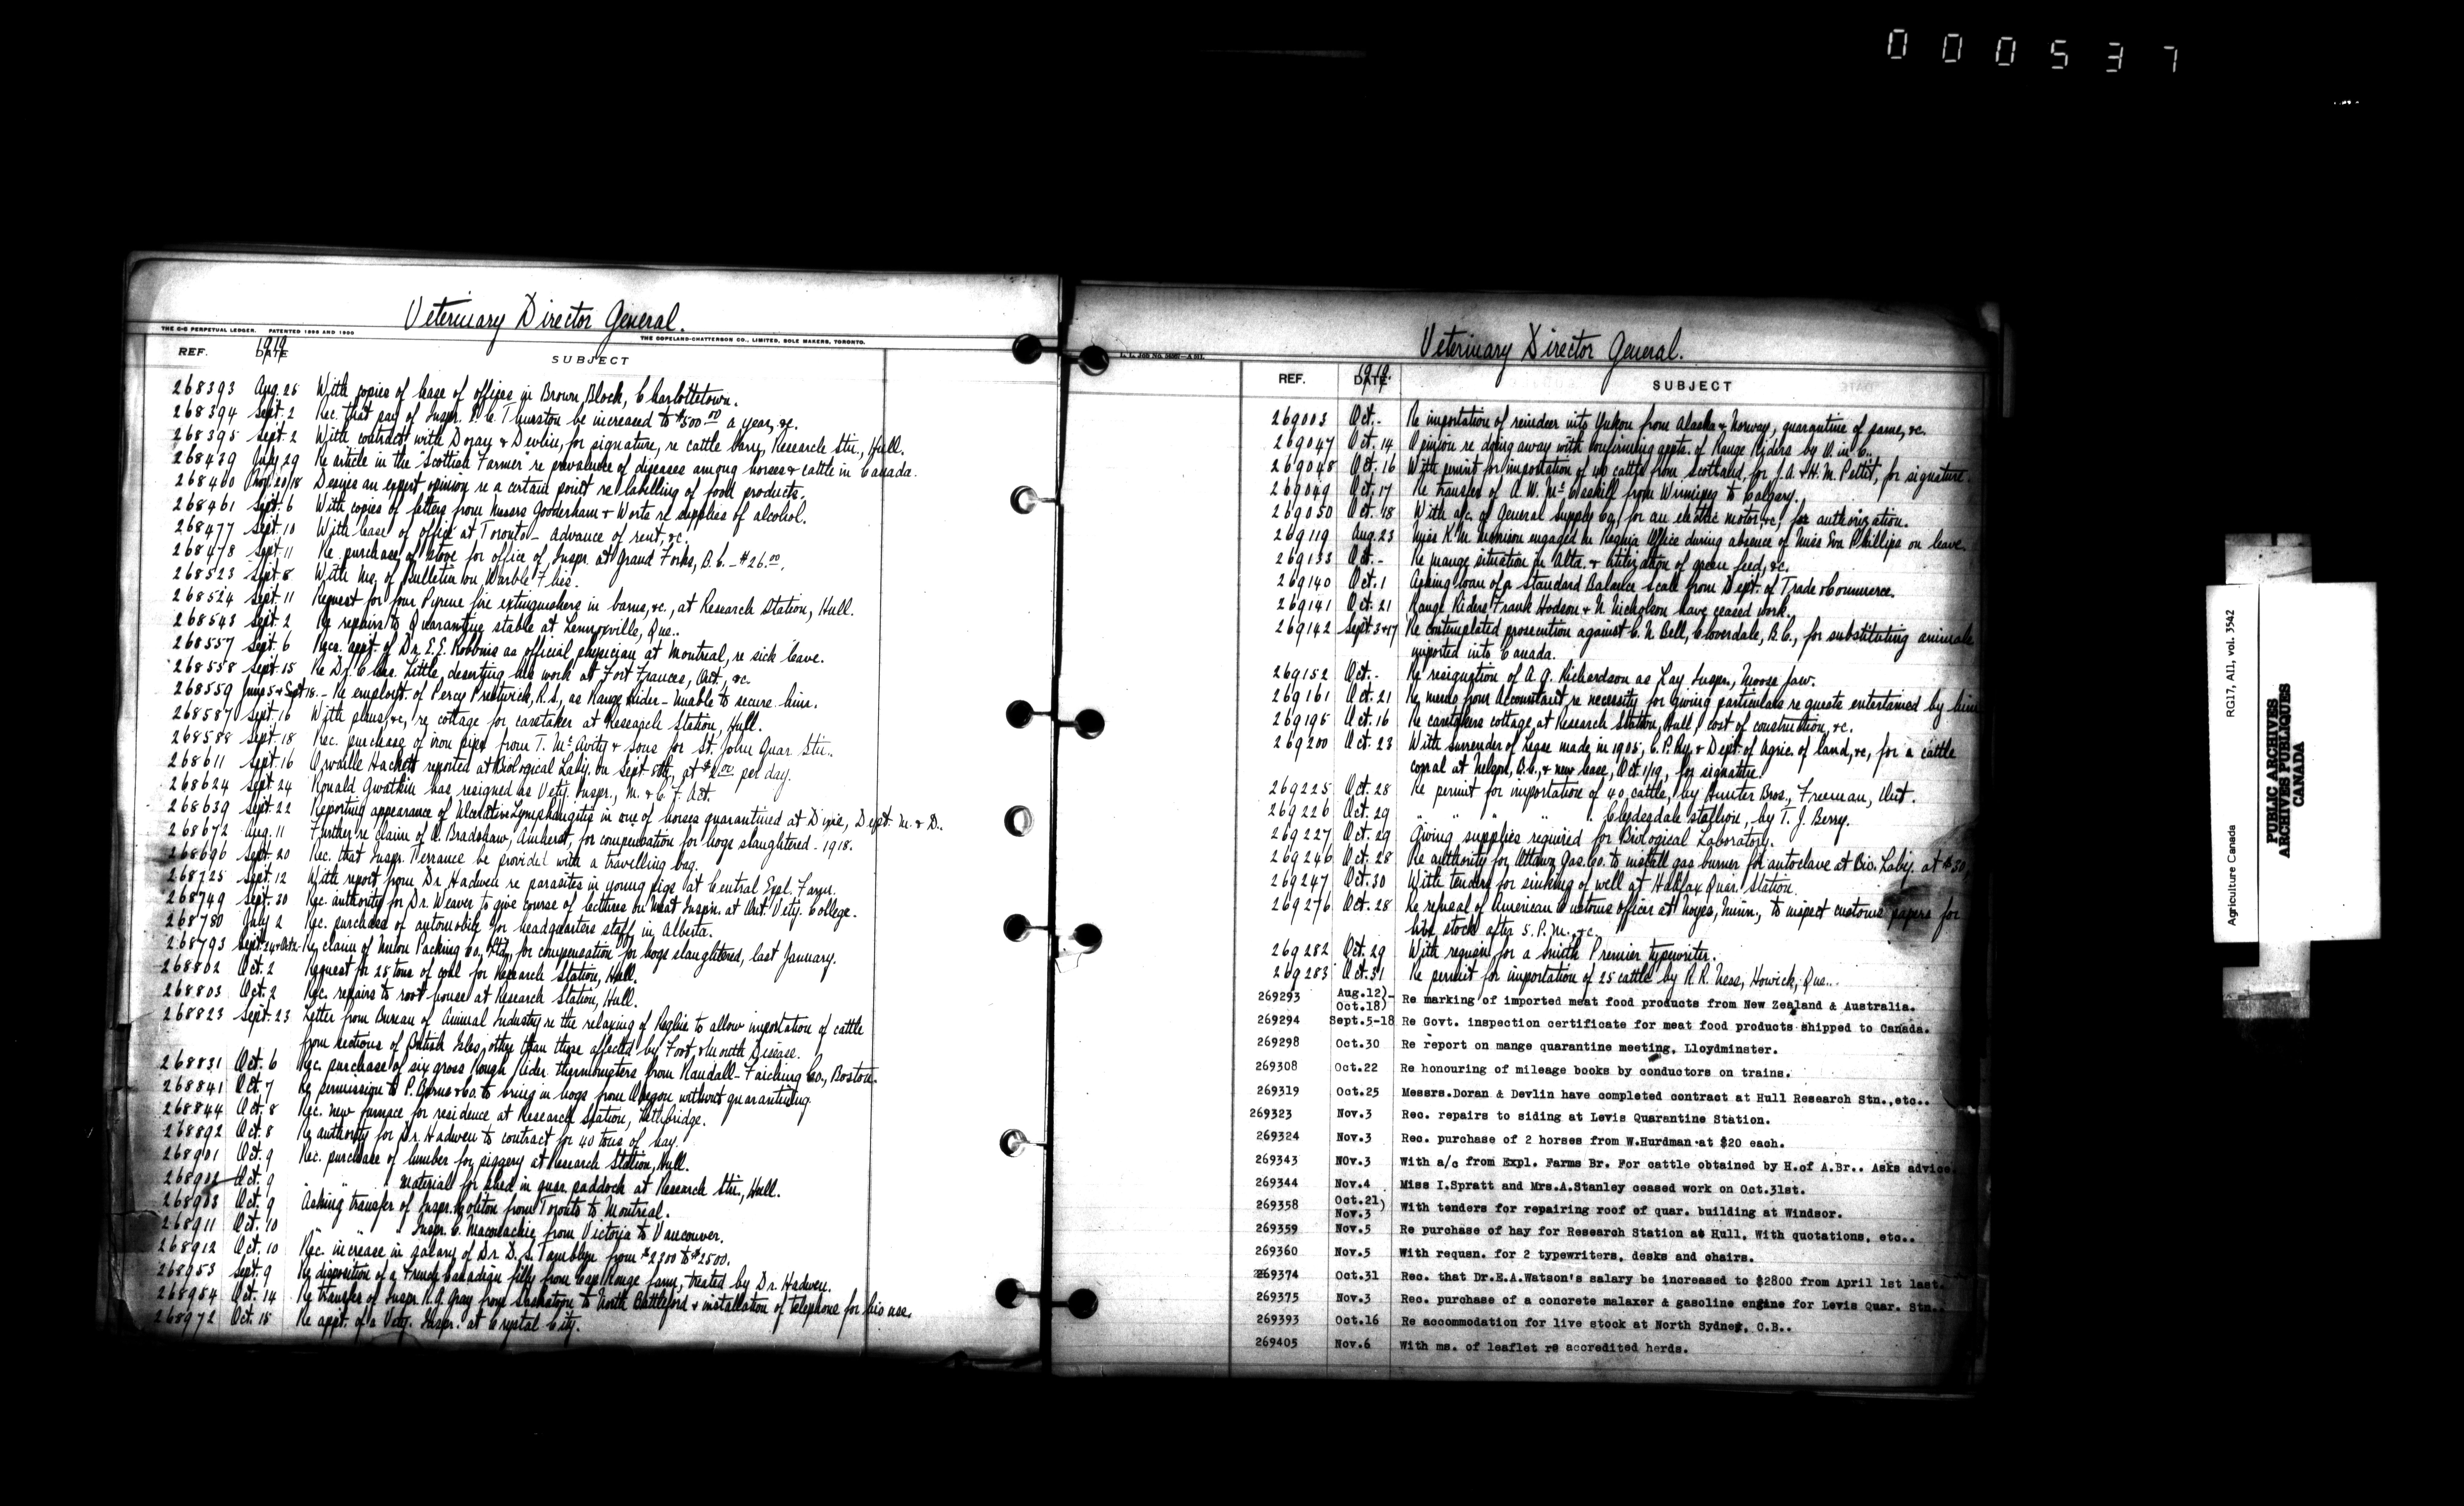 000537
Veterinary Director General.
THE C-C PERPETUAL LEDGER. PATENTED 1896 AND 1900
THE COPELAND-CHATTERSON CO., LIMITED, SOLE MAKERS, TORONTO.
REF. 1919 DATE SUBJECT
268393 Aug. 25 With copies of lease of offices in Brown Block, Charlottetown.
268394 Sept. 2 Rec. that pay of Inspr. Thurston be increased to $500.00 a year, &c.
268395 Sept. 2 With contract with Doray & Devlin, for signature, re cattle barn, Research Stn., Hull.
268439 July 29 Re article in the "Scottish Farmer" re prevalence of diseases among horses & cattle in Canada.
268460 20/18 Desires an expert opinion re a certain point re labelling of food products.
268461 Sept. 6 With copies of letters from Messrs Gooderham & Worts re supplies of alcohol.
268477 Sept. 10 With lease of office at Toronto - advance of rent, &c.
268478 Sept. 11 Re purchase of stove for office of Inspr. at Grand Forks, B.C. - $26.00.
268523 Sept. 8 With Ms. of Bulletin on Warble Flies.
268524 Sept. 11 Request for four Pyrene fire extinguishers in barns, &c., at Research Station, Hull.
268543 Sept. 2 Re repairs to Quarantine stable at Lennoxville, Que..
268557 Sept. 6 Rec. appt. of Dr. E.E. Robbins as official physician at Montreal, re sick leave.
268558 Sept. 15 Re Dr. Chas. Little, deserting his work at Fort Frances, Ont., &c.
268559 June 5 & Sept 18. - Re employt. of Percy Prestwick, R.S., as Range Rider - Unable to secure him.
268587 Sept. 16 With plans, &c, re cottage for caretaker at Research Station, Hull.
268588 Sept. 18 Rec. purchase of iron pipe from T. McAvity & sons for St. John Quar. Stn.
268611 Sept. 16 Orvaille Hackett reported at Biological Laby. on Sept 8th, at per day.
268624 Sept. 24 Ronald Gwatkin has resigned as Vety. Inspr., M. & C. F. Oct.
268639 Sept. 22 Reporting appearance of Ulcerative Lymphangitis in one of horses quarantined at Dept. M. & D..
268672 Aug. 11 Further re claim of Bradshaw, Amherst, for compensation for hogs slaughtered - 1918.
268696 Sept. 20 Rec. that Inspr. Terrance be provided with a travelling bag.
268725 Sept. 12 With report from Dr. Hadwen re parasites in young pigs at Central Expl. Farm.
268749 Sept. 30 Rec. authority for Dr. Weaver to give course of lectures on Meat Inspn. at Ont. Vety. College.
268780 July 2 Rec. purchase of automobile for headquarters staff in Alberta.
268793 Re claim of Union Packing Co., Ltd., for compensation for hogs slaughtered, last January.
268802 Oct. 2 Request for 25 tons of coal for Research Station, Hull.
268803 Oct. 2 Rec. repairs to root house at Research Station, Hull.
268823 Sept. 23 Letter from Bureau of Animal Industry re the relaxing of Regltns to allow importation of cattle
from sections of British Isles, other than those affected by Foot & Mouth Disease.
268831 Oct. 6 Rec. purchase of six gross Rough Rider thermometers from Randall-Faiching Co., Boston.
268841 Oct. 7 Re permission to P. Burns & Co. to bring in hogs from Oregon without quarantining.
268844 Oct. 8 Rec. new furnace for residence at Research Station, Lethbridge.
268892 Oct. 8 Re authority for Dr. Hadwen to contract for 40 tons of hay.
268901 Oct. 9 Rec. purchase of lumber for piggery at Research Station, Hull.
268902 Oct. 9 " " material for shed in quar. paddock at Research Stn., Hull.
268903 Oct. 9 Asking transfer of Inspr. Coliton from Toronto to Montreal.
268911 Oct. 10 " " Inspr. C. Maconachie from Victoria to Vancouver.
268912 Oct. 10 Rec. increase in salary of Dr. D.S. Tamblyn from $2300 to $2500.
268953 Sept. 9 Re disposition of a French Canadian filly from Cap Rouge farm, treated by Dr. Hadwen.
268954 Oct. 14 Re transfer of Inspr. R.A. Gray from Saskatoon to North Battleford & installation of telephone for his use.
268972 Oct. 15 Re appt. of a Vety. Inspr. at Crystal City.
Veterinary Director General.
REF. 1919. DATE SUBJECT
269003 Oct. - Re importation of reindeer into Yukon from Alaska & Norway, quarantine of same, &c.
269047 Oct. 14 Opinion re doing away with confirming appts. of Range Riders by O. in C..
269048 Oct. 16 With permit for importation of 40 cattle from Scotland, for J.A. & H.M. Pettit, for signature.
269049 Oct. 17 Re transfer of A.W. McCaskill from Winnipeg to Calgary.
269050 Oct. 18 With a/c. of General Supply Co., for an electric motor, &c. for authorization.
269119 Aug. 23 Miss K.M. Morrison engaged in Regina Office during absence of Miss Eva Phillips on leave.
269133 Oct. - Re mange situation in Alta. & utilization of green feed, &c.
269140 Oct. 1 Asking loan of a Standard Balance Scale from Dept. of Trade & Commerce.
269141 Oct. 21 Range Riders Frank Hodson & N. Nicholson have ceased work.
269142 Sept. 3 & 17 Re contemplated prosecution against C.N. Bell, Cloverdale, B.C., for substituting animals
imported into Canada.
269152 Oct. - Re resignation of A.G. Richardson as Lay Inspr., Moose Jaw.
269161 Oct. 21 Re memo from Accountant re necessity for giving particulars re guests entertained by him
269195 Oct. 16 Re caretakers cottage, at Research Station, Hull, cost of construction, &c.
269200 Oct. 23 With surrender of lease made in 1905, C.P.Ry. & Dept. of Agric. of land, &c, for a cattle
corral at Nelson, B.C., & new lease, Oct. 1/19, for signature.
269225 Oct. 28 Re permit for importation of 40 cattle, by Hunter Bros., Freeman, Ont.
269226 Oct. 29 " " " " Clydesdale stallion, by T. J. Berry.
269227 Oct. 29 Giving supplies required for Biological Laboratory.
269246 Oct. 28 Re authority for Ottawa Gas. Co. to install gas burner for autoclave at Bio. Laby. at $30.
269247 Oct. 30 With tenders for sinking of well at Halifax Quar. Station.
269276 Oct. 28 Re refusal of American Customs Officer at Noyes, Minn., to inspect customs papers for
live stock after 5. P.M., &c.
269282 Oct. 29 With requisn for a Smith Premier typewriter.
269283 Oct. 31 Re permit for importation of 25 cattle by R.R. Ness, Howick, Que...
269293 Aug.12)- Oct.18) Re marking of imported meat food products from New Zealand & Australia.
269294 Sept.5-18 Re Govt. inspection certificate for meat food products shipped to Canada.
269298 Oct.30 Re report on mange quarantine meeting, Lloydminster.
269308 Oct.22 Re honouring of mileage books by conductors on trains.
269319 Oct.25 Messrs.Doran & Devlin have completed contract at Hull Research Stn.,etc..
269323 Nov.3 Rec. repairs to siding at Levis Quarantine Station.
269324 Nov.3 Rec. purchase of 2 horses from W.Hurdman at $20 each.
269343 NOv.3 With a/c from Expl. Farms Br. For cattle obtained by H.of A.Br.. Asks advice.
269344 Nov.4 Miss I.Spratt and Mrs.A.Stanley ceased work on Oct.31st.
269358 Oct.21) Nov.3 With tenders for repairing roof of quar. building at Windsor.
269359 Nov.5 Re purchase of hay for Research Station at Hull, With quotations, etc..
269360 Nov.5 With requsn. for 2 typewriters, desks and chairs.
269374 Oct.31 Rec. that Dr.E.A.Watson's salary be increased to $2800 from April 1st last.
269375 Nov.3 Rec. purchase of a concrete malaxer & gasoline engine for Levis Quar. Stn..
269393 Oct.16 Re accommodation for live stock at North Sydney, C.B..
269405 Nov.6 With ms. of leaflet re accredited herds.
Agriculture Canada RG17, A11, vol. 3542
PUBLIC ARCHIVES
ARCHIVES PUBLIQUES
CANADA